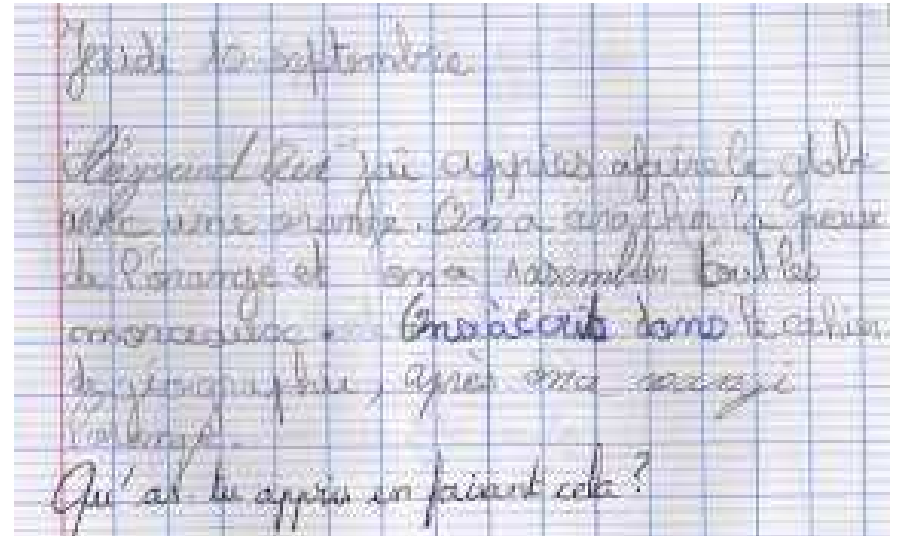 Jeudi 10 septembre
j'ai appris afaire le globe
avec une orange. On a aracher la peau
de l'orange et on a rasembler tout les
morceause. On a écrit dans le cahier
de géographie, après on a mangé
l'orange.
Qu'as tu appris en faisant cela ?